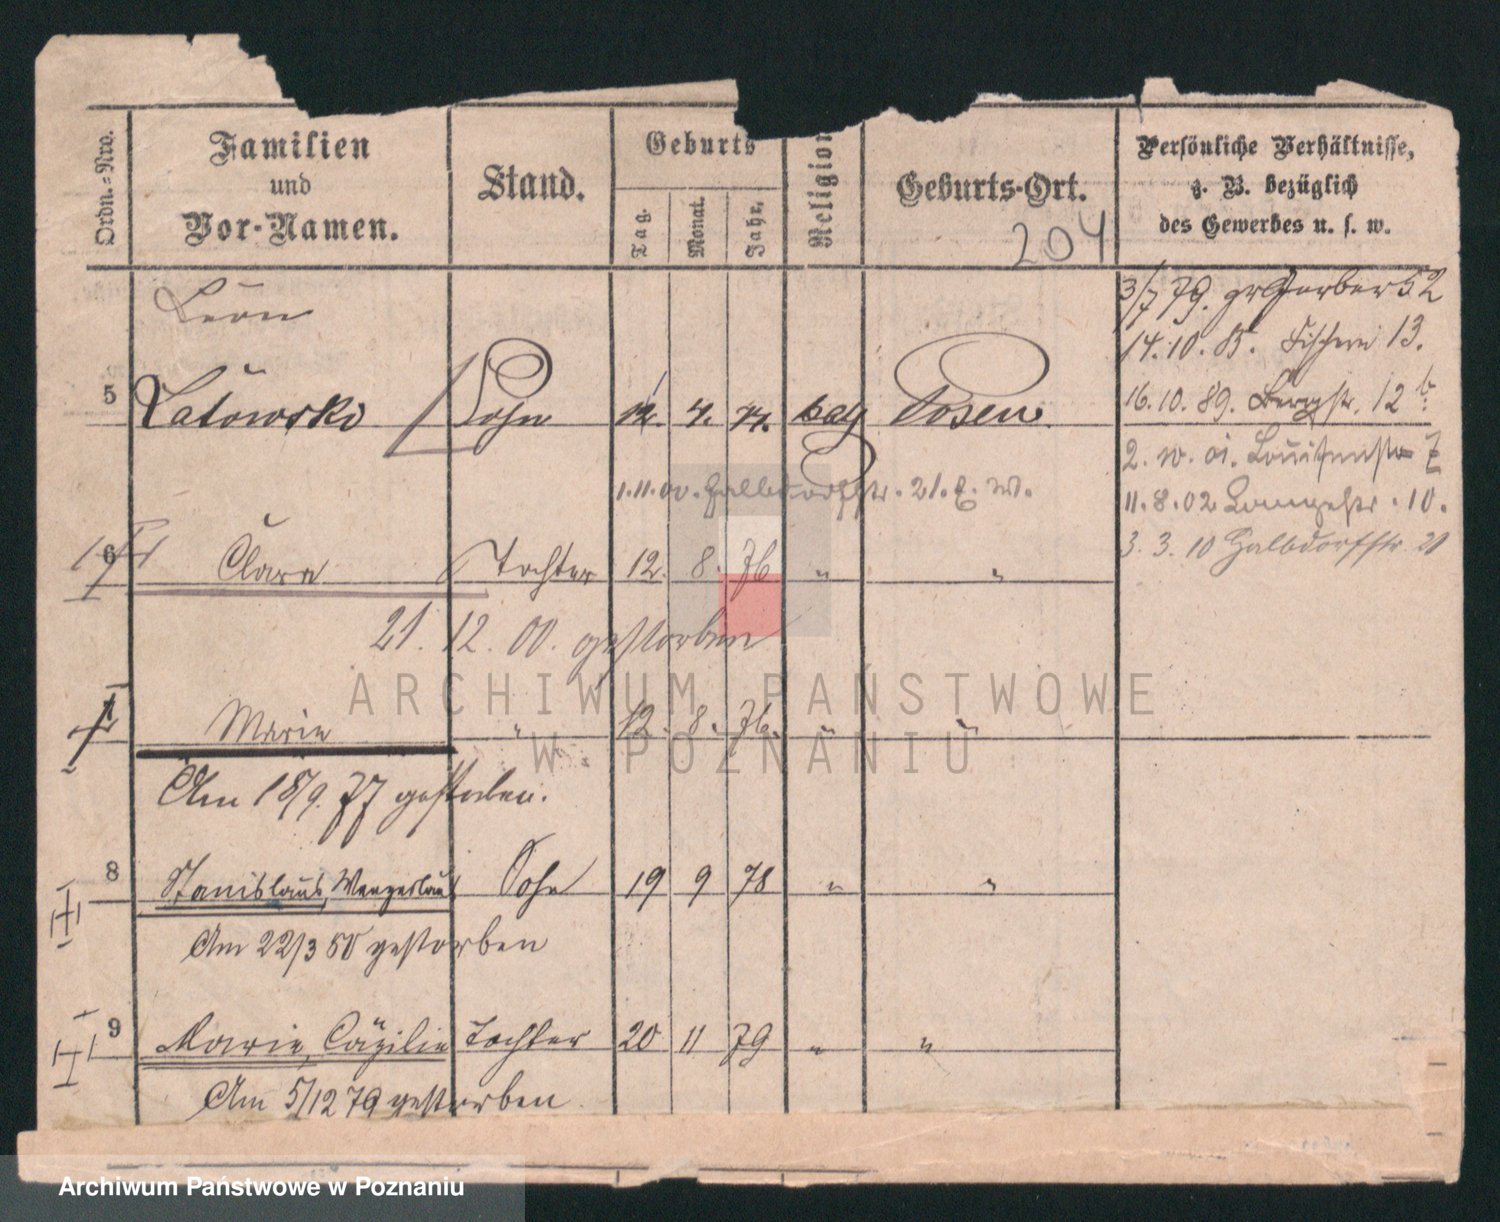 Ordn.-Nro.
Familien
und
Vor-Namen.
Stand.
Geburts
Tag.
Monat.
Jahr.
Religion
Geburts-Ort.
204
Persönliche Verhältnisse,
z. B. bezüglich
des Gewerbes u. s. w.
3/7 79. gr Gerber 52
Leon
14.10.85. Fischerei 13.
5 Latowski Sohn 12. 4. 74. Posen
16.10.89. Bergstr. 12 b.
2. 10. 01. Louisenstr 7
1.11.00. Halbdorfstr. 21. E. W.
11.8.02 Langestr. 10.
3. 3. 10 Halbdorfstr 21
6 Clara Tochter 12. 8. 76 " "
21. 12. 00. gestorben
Marie " 12. 8. 76. " "
Am 18/9. 77 gestorben.
8 Stanislaus, Wenzeslaus Sohn 19 9 78 " "
Am 22/3 80 gestorben
9 Marie, Cäzilie Tochter 20 11 79 " "
Am 5/12 79 gestorben
ARCHIWUM PAŃSTWOWE
W POZNANIU
Archiwum Państwowe w Poznaniu